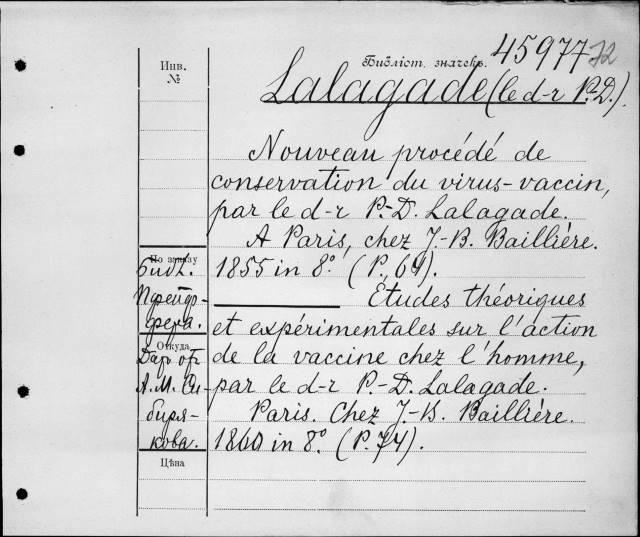 Библіот. значекъ. 45977 72
Инв.
№
Lalagade (le d-r P.-D.).
Nouveau procédé de
conservation du virus-vaccin,
par le d-r P.-D. Lalagade.
A Paris, chez J.-B. Baillière.
1855 in 8.° (P. 69).
Études théoriques
et expérimentales sur l'action
de la vaccine chez l'homme,
par le d-r P.-D. Lalagade.
Paris. Chez J.-B. Baillière.
1860 in 8.° (P. 74).
По заказу
Библ.
Пфейф-
фера.
Откуда
Даръ отъ
А. М. Си-
биря-
кова.
Цѣна